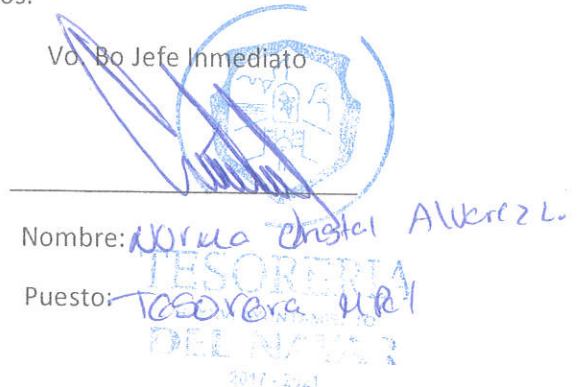 os.
Vo. Bo Jefe Inmediato
Nombre: Norma Cristal Alvarez L.
TESORERIA
Puesto: Tesorera Mpal
DEL NAYAR
2017 - 2021